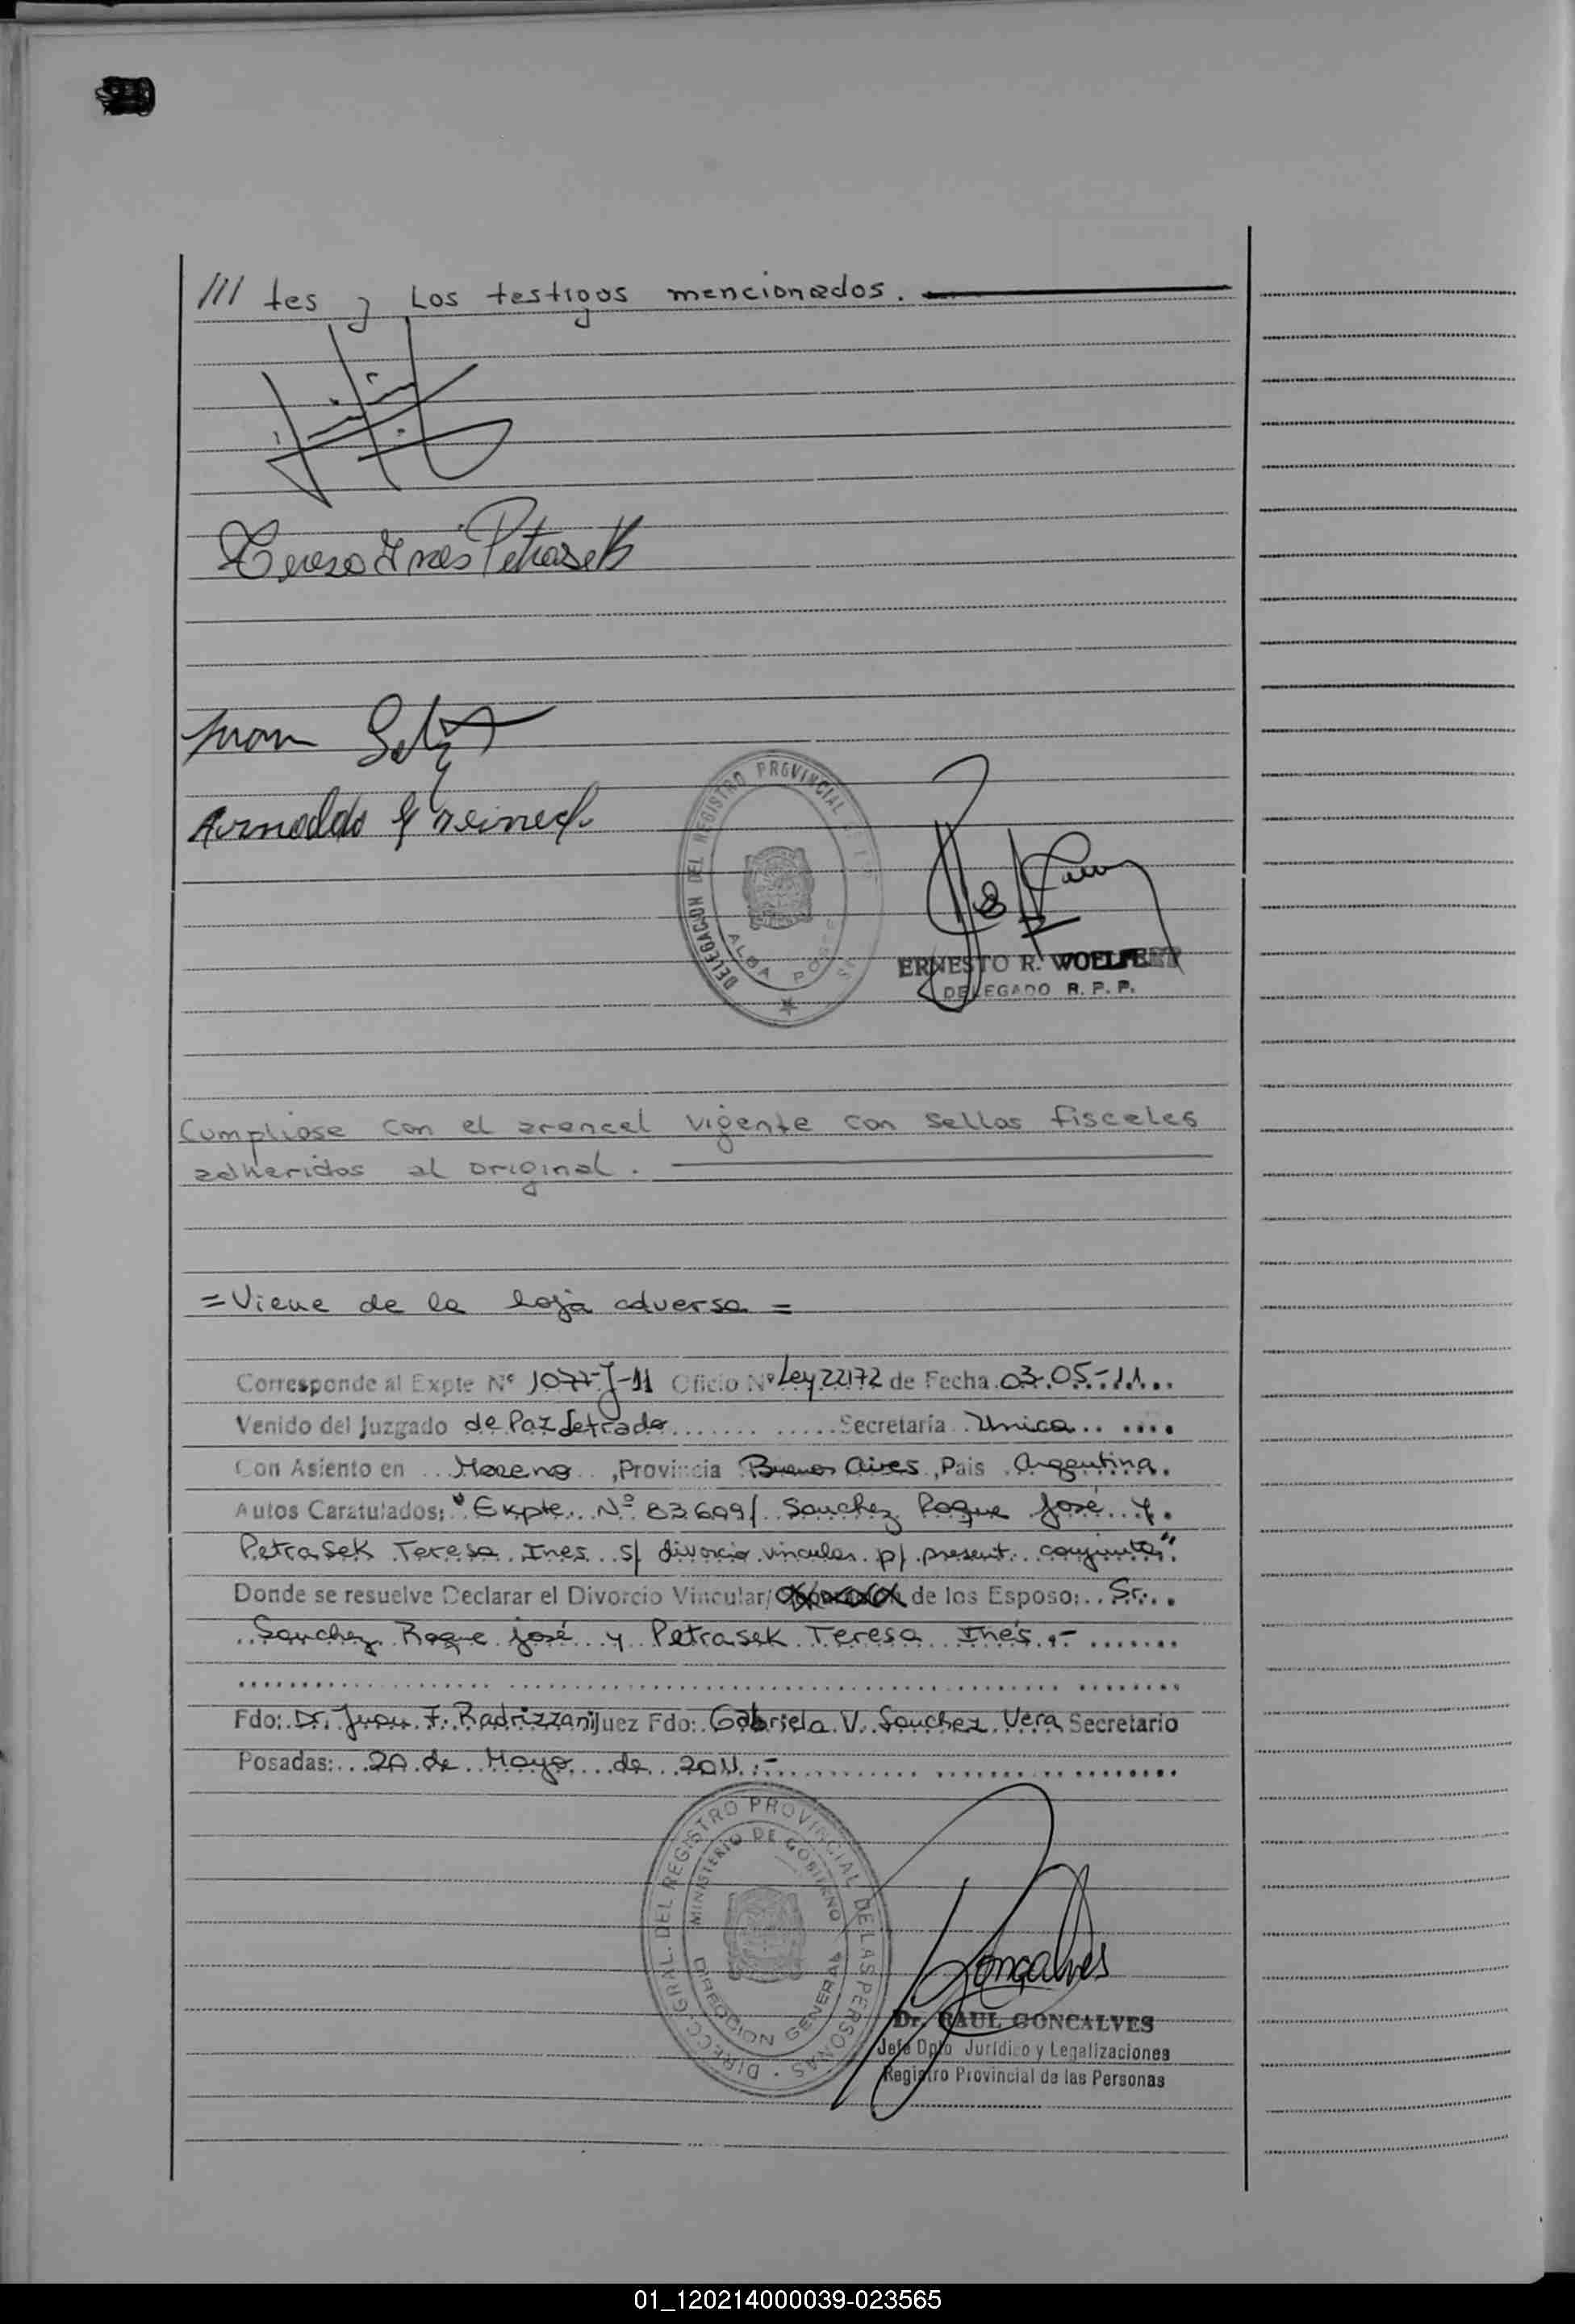 /// tes y Los testigos mencionados.
Teresa Inés Petrasek
Juan
Arnoldo
DELEGACION DEL REGISTRO PROVINCIAL DE LAS
ALBA POSSE
ERNESTO R. WOELFERT
DELEGADO R. P. P.
Cumpliose con el arancel vigente con sellos fiscales
adheridos al original.
= Viene de la hoja adversa =
Corresponde al Expte Nº 1077-J-11 Oficio Nº Ley 22172 de Fecha 03-05-11
Venido del Juzgado de Paz Letrado Secretaría Unica
Con Asiento en Moreno, Provincia Buenos Aires, Pais Argentina.
Autos Caratulados: "Expte. Nº 83699/ Sanchez Roque José y
Petrasek Teresa Ines s/ divorcio vincular p/ present. conjunta"
Donde se resuelve Declarar el Divorcio Vincular/ de los Esposo: Sr.
Sanchez Roque José y Petrasek Teresa Inés.-
Fdo: Dr. Juan F. Radrizzani Juez Fdo: Gabriela V. Sanchez Vera Secretario
Posadas: 20 de Mayo de 2011.-
DIRECC. GRAL. DEL REGISTRO PROVINCIAL DE LAS PERSONAS
MINISTERIO DE GOBIERNO
DIRECCION GENERAL
Gonçalves
Dr. RAUL GONCALVES
Jefe Dpto Jurídico y Legalizaciones
Registro Provincial de las Personas
01_120214000039-023565